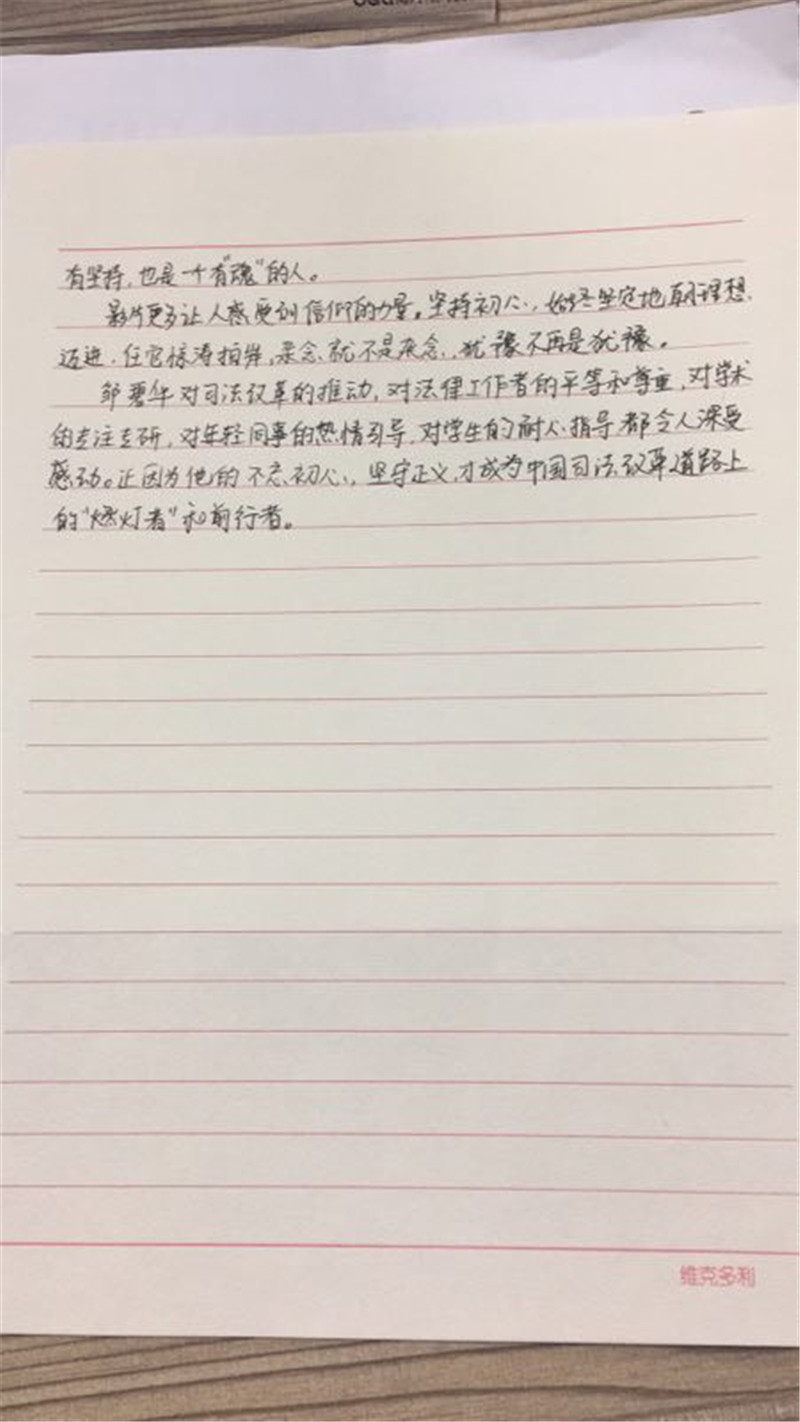 有坚持,也是一个有“魂”的人。
影片更多让人感受到信仰的力量。坚持初心,始终坚定地朝理想
迈进.任它惊涛拍岸,杂念就不是杂念,犹豫不再是犹豫。
邹碧华对司法改革的推动,对法律工作者的平等和尊重,对学术
的专注专研,对年轻同事的热情引导,对学生的耐心指导都令人深受
感动。正因为他的不忘初心,坚守正义,才成为中国司法改革道路上
的“燃灯者”和前行者。
维克多利